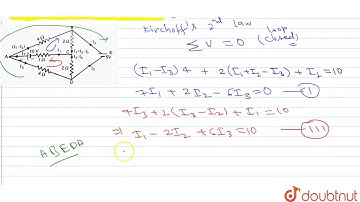 Kirchoff's 2nd law
∑ V = 0 (loop closed)
(I₁-I₃) 4 + 2(I₁+I₂-I₃) + I₁ = 10
7I₁ + 2I₂ - 6I₃ = 0 — I
4I₃ + 2(I₃-I₂) + I₁ = 10
⇒ I₁ - 2I₂ + 6I₃ = 10 — III
ABEDA
doubtnut